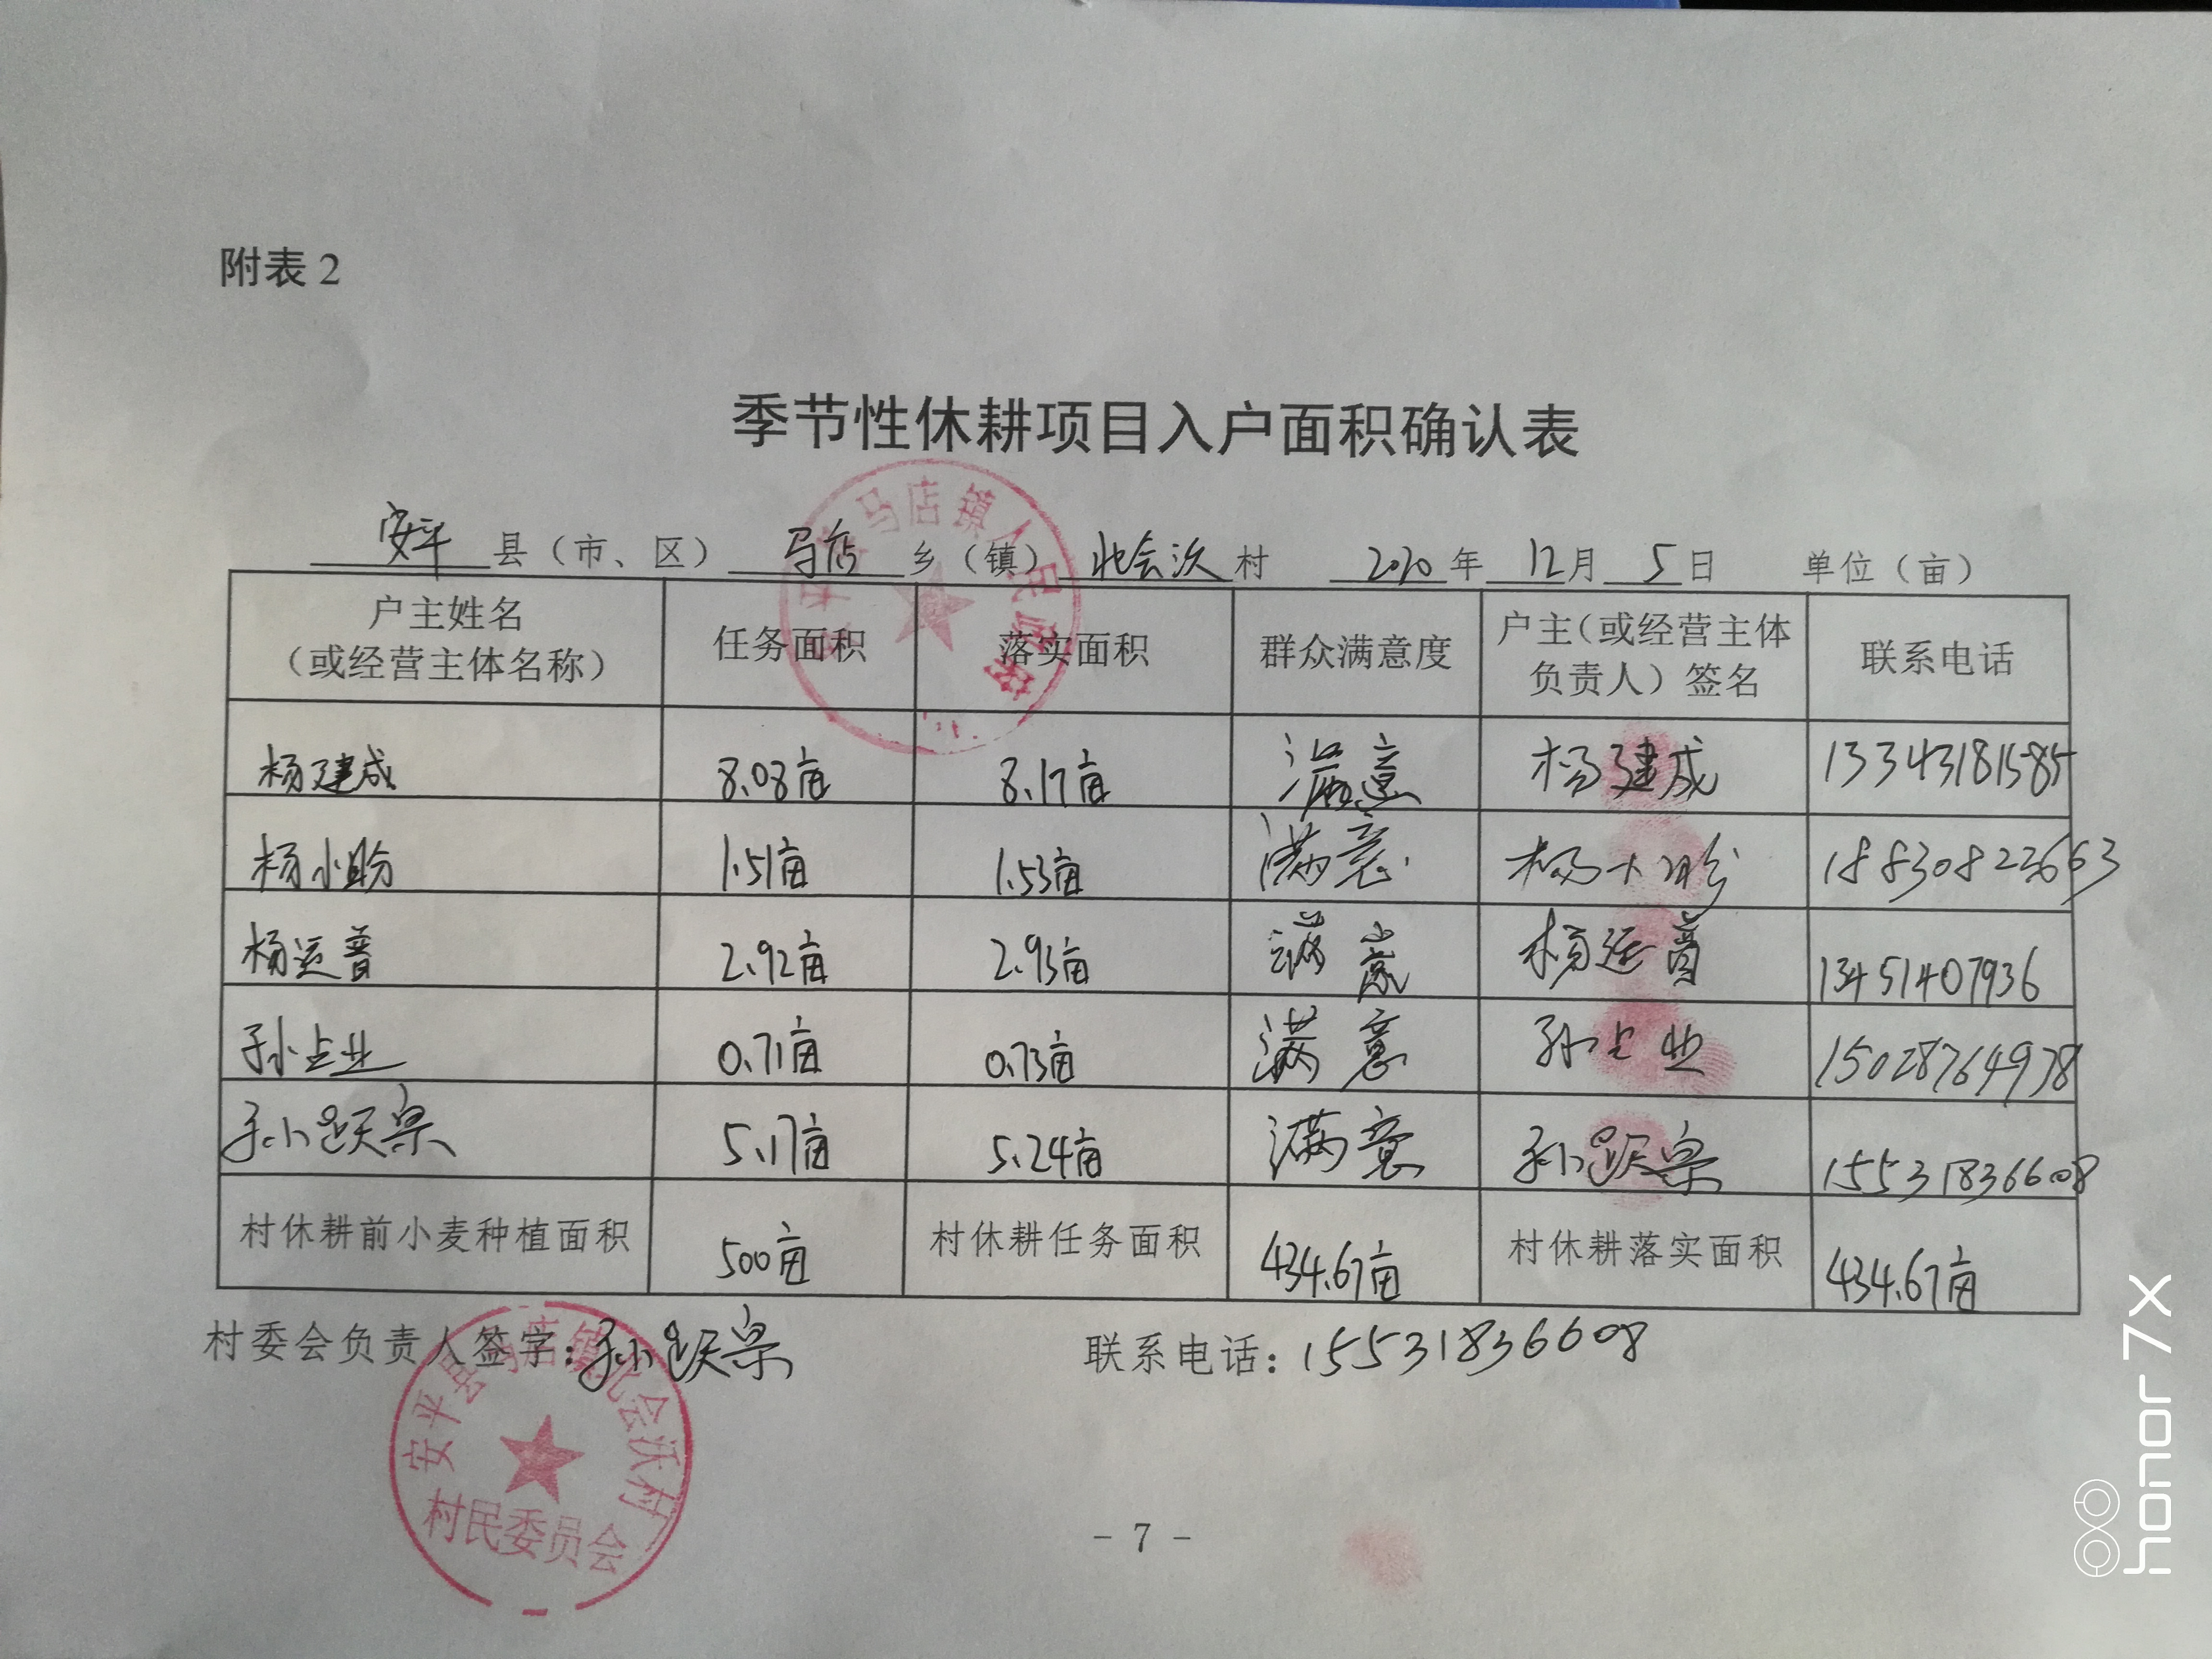 附表2
季节性休耕项目入户面积确认表
安平县（市、区）马店乡（镇）北会沃村 2020年12月5日 单位（亩）
户主姓名（或经营主体名称） 任务面积 落实面积 群众满意度 户主（或经营主体负责人）签名 联系电话
杨建成 8.08亩 8.17亩 满意 杨建成 13343181585
杨小盼 1.51亩 1.53亩 满意 杨小盼 18830822663
杨运普 2.92亩 2.93亩 满意 杨运普 13451407936
孙占业 0.71亩 0.73亩 满意 孙占业 15028764978
孙跃宗 5.17亩 5.24亩 满意 孙跃宗 15531836608
村休耕前小麦种植面积 500亩 村休耕任务面积 434.67亩 村休耕落实面积 434.67亩
村委会负责人签字：孙跃宗 联系电话：15531836608
马店镇人民政府
安平县马店镇北会沃村
村民委员会
- 7 -
honor 7X